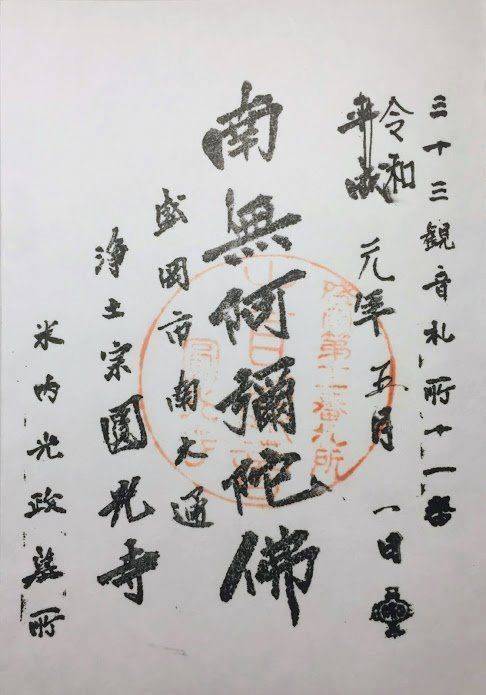 三十三観音札所十一番
平成 令和 元年五月一日
南無阿彌陀佛
盛岡市南大通
浄土宗圓光寺
米内光政墓所
第十一番札所